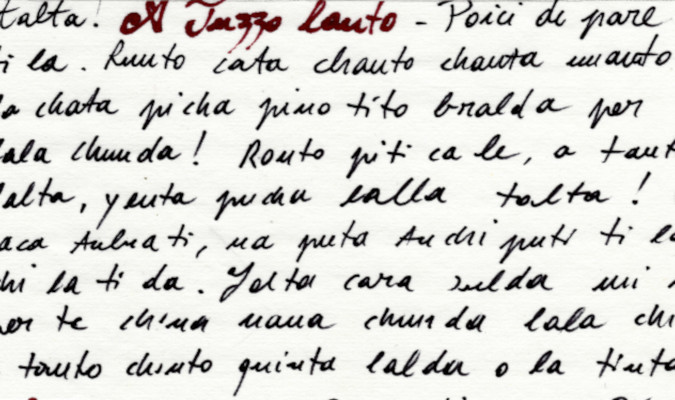 talta! A Tuzzo lanto - Poici di pare
ti la. Runto cata chanto chanta unanto
la chata picha pino tito bralda per
lala chunda! Ronto piti ca le, a tant
lalta, yenta pucha lalla talta!
aca ti, na puta ti la
chi la ti da. Jolta cara mi
per te china nana chunda lala chi
tanto chinto quinta lalda o la tinta